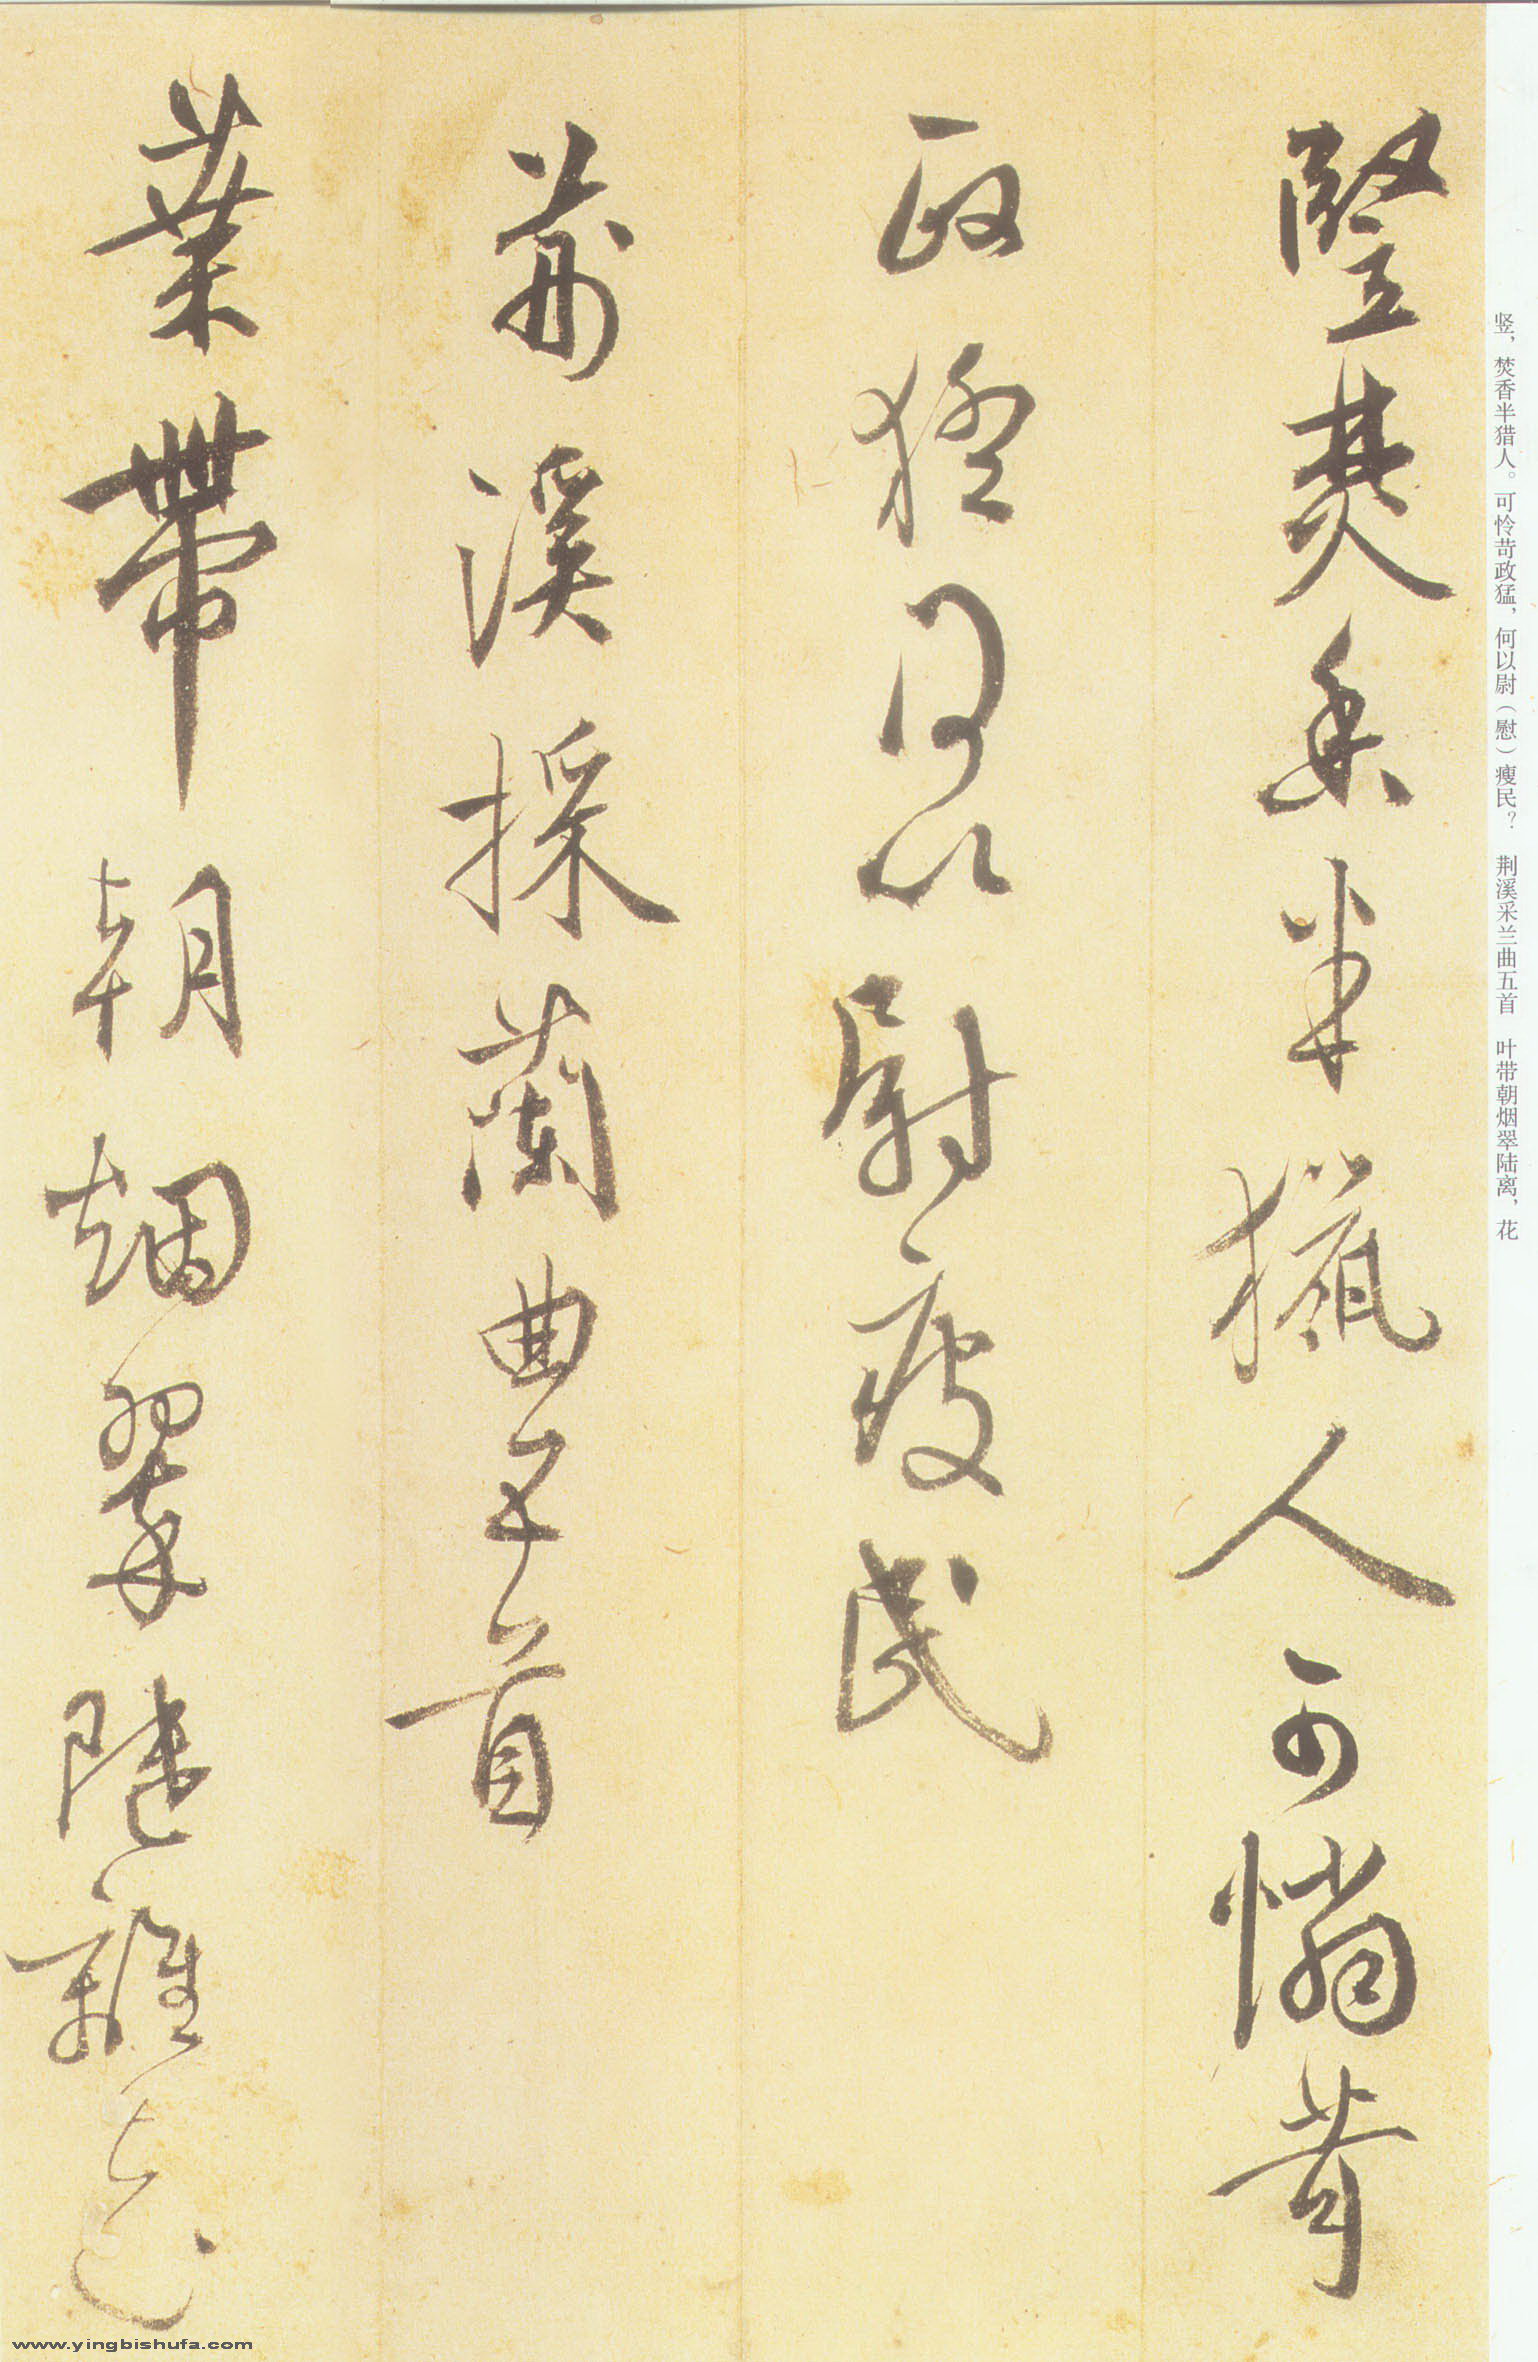 竖，焚香半猎人。可怜苛政猛，何以尉（慰）瘦民？　荆溪采兰曲五首　叶带朝烟翠陆离，花
竪焚香半獵人可憐苛
政猛何以尉疲民
荊溪採蘭曲五首
葉帶朝烟翠陸離花
www.yingbishufa.com